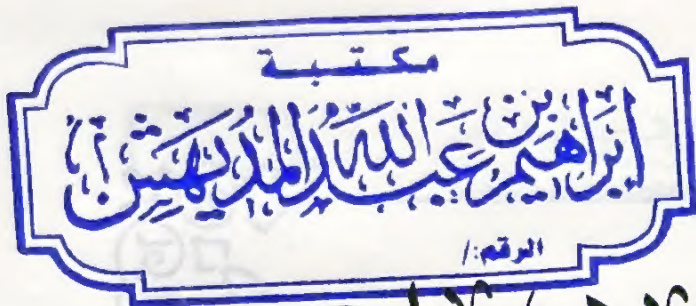 مكتبة
إبراهيم بن عبد الله المديهش
الرقم:/